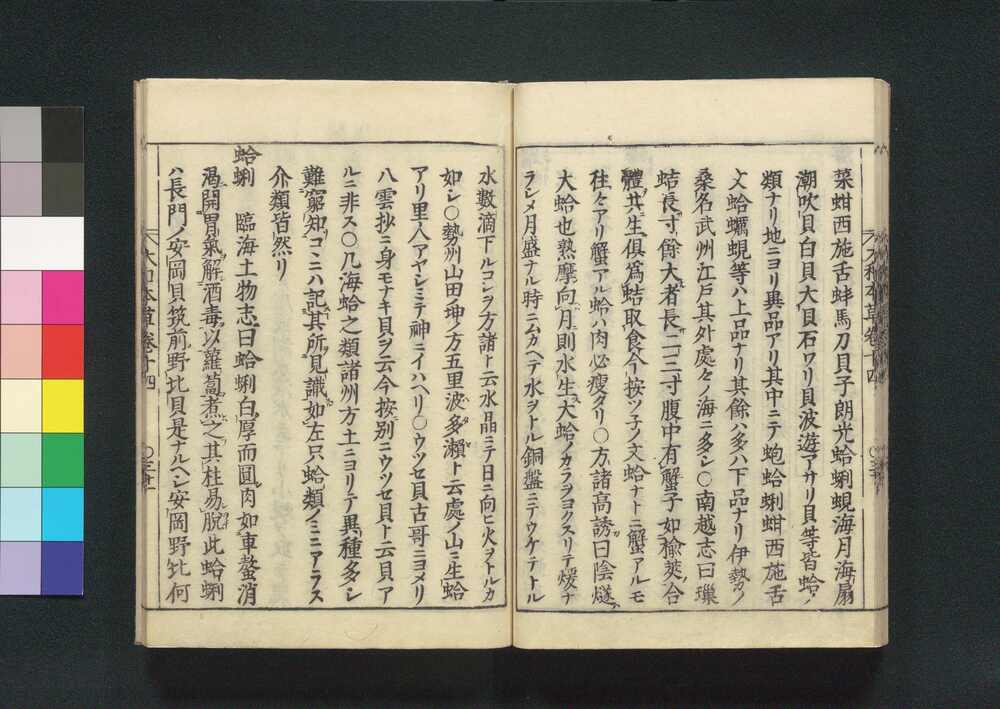 菜蚶西施舌蚌馬刀貝子朗光蛤蜊蜆海月海扇
潮吹貝白貝大貝石ワリ貝波遊アサリ貝等皆蛤ノ
類ナリ地ニヨリ異品アリ其中ニテ蚫蛤蜊蚶西施舌
文蛤蠣蜆等ハ上品ナリ其餘ハ多ハ下品ナリ伊勢ノ
桑名武州江戸其外處々ノ海ニ多シ〇南越志曰璅
蛣長寸餘大者長二三寸腹中有蟹子如楡莢合
體共生俱爲蛣取食今按ツ子ノ文蛤ナトニ蟹アルモ
徃々アリ蟹アル蛤ハ肉必瘦タリ〇方諸高誘曰陰燧
大蛤也熟摩向月則水生大蛤ノカラヲヨクスリテ煖ナ
ラシメ月盛ナル時ニムカヘテ水ヲトル銅盤ニテウケテトル
大和本草卷十四
水數滴下ルコレヲ方諸ト云水晶ニテ日ニ向ヒ火ヲトルカ
如シ〇勢州山田ノ坤ノ方五里波多瀨ト云處ノ山ニ生蛤
アリ里人アヤシミテ神ニイハヘリ〇ウツセ貝古哥ニヨメリ
八雲抄ニ身モナキ貝ヲ云今按別ニウツセ貝ト云貝ア
ルニ非ス〇凡海蛤之類諸州方土ニヨリテ異種多シ
難窮知コヽニハ記其所見識如左只蛤類ノミニアラス
介類皆然リ
蛤蜊 臨海土物志曰蛤蜊白厚而圓肉如車螯消
渴開胃氣解酒毒以蘿蔔煮之其柱易脫此蛤蜊
ハ長門ノ安岡貝筑前野北貝是ナルヘシ安岡野北何
大和本草卷十四